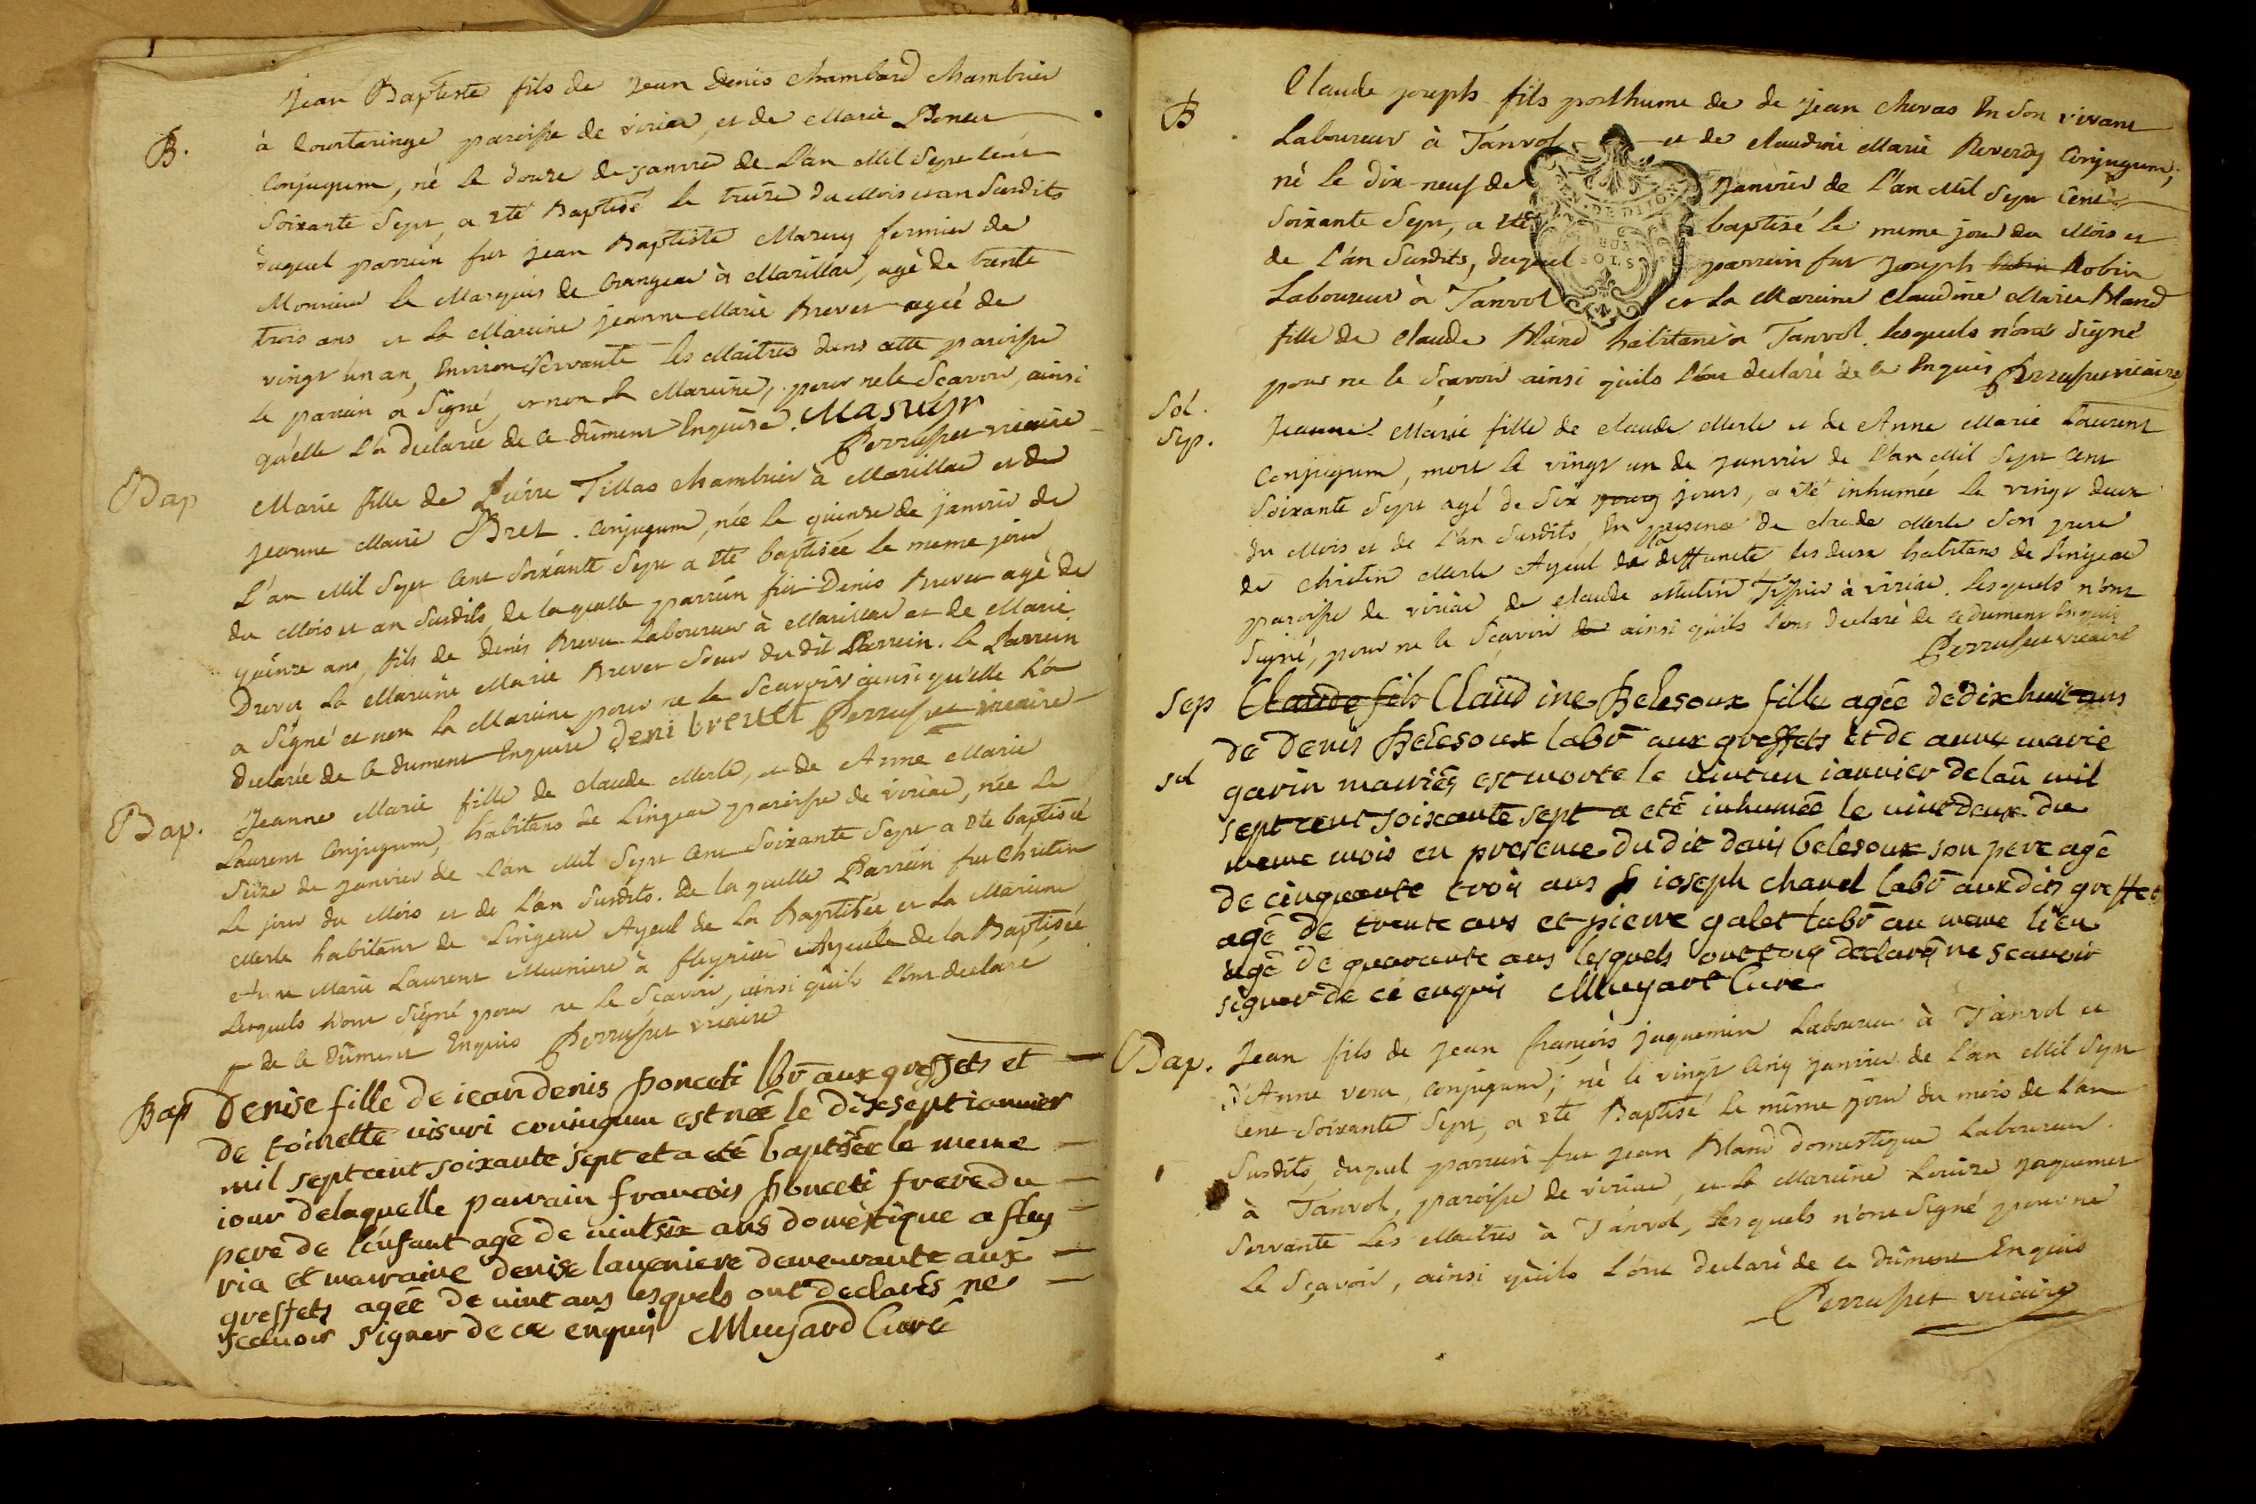 Jean Baptiste fils de Jean Denis Chambard chambrier
B. à Courtaringe paroisse de viriac, et de Marie Poncet
Conjugum, né le douze de janvier de L'an Mil Sept Cent
Soixante Sept, a été Baptisé le treize du Mois et an Susdits
duquel parrein fut jean Baptiste fermier de
Monsieur le Marquis de à Marillac, agé de trente
trois ans et la Mareine jeanne Marie Brevet agée de
vingt un an, Environ Servante les Maitres dans cette paroisse
le parrein a Signé, et non la Mareine, pour ne le Scavoir, ainsi
qu'elle L'a declarée de ce dûment Enquise.
Perrusset vicaire
Bap Marie fille de Pierre Tillas chambrier à Marillac et de
jeanne Marie Bret. Conjugum, née le quinze de janvier de
L'an Mil Sept Cent Soixante Sept a été baptisée le meme jour
du Mois et an Susdits, de laquelle parrein fut Denis Brevet agé de
quinze ans, fils de Denis Brevet Laboureur à Marillac et de Marie
la Mareine Marie Brevet Soeur du dit Parrein. Le Parrein
a Signé et non la Mareine pour ne le Scavoir ainsi qu'elle L'a
declarée de ce dument Enquise deni brevet Perrusset vicaire
Bap. Jeanne Marie fille de claude Merle, et de Anne Marie
Laurent Conjugum, habitans de Lingeat paroisse de viriac, née Le
Seize de janvier de L'an Mil Sept Cent Soixante Sept a été baptisée
Le jour du Mois et de L'an Susdits. De laquelle Parrein fut Chretin
Merle habitant de Lingeat Ayeul de La Baptisée et La Mareine
Anne Marie Laurent Meuniere à fleyriac Ayeule de la Baptisée
Lesquels n'ont Signé pour ne le Sçavoir, ainsi qu'ils L'ont declaré
de ce Dûment Enquis Perrusset vicaire
Bap Denise fille de iean denis ponceti lbr aux greffets et
de toinette uisuri coniugum est née le dix sept ianuier
mil sept cent soixante sept et a eté baptisée le meme
iour de laquelle parrain francois ponceti frere du
pere de l'enfant agé de uint six ans domestique a fley
ria et marraine denise laueniere demeurante aux
greffets agée de uint ans lesquels ont declarés ne
scauoir signer de ce enquis Muyard Curé
B Claude joseph fils posthume de de jean chevas En Son vivant
Laboureur à Tanvol et de claudine Marie Reverdy Conjugum,
né le dix-neuf de janvier de L'an Mil Sept Cent
Soixante Sept, a été baptisé le meme jour du Mois et
de L'an Susdits, duquel parrein fut joseph Robin
Laboureur à Tanvol et La Mareine claudine Marie Bland
fille de claude Bland habitans à Tanvol. lesquels n'ont Signé
pour ne le Sçavoir ainsi qu'ils L'ont declaré de ce Enquis Perrusset vicaire
GEN. DE DIJON
DEUX
SOLS
Sol. Jeanne Marie fille de claude Merle et de Anne Marie Laurent
Sep. Conjugum, mort le vingt un de janvier de L'an Mil Sept Cent
Soixante Sept agé de Six jours, a été inhumée le vingt deux
du Mois et de L'an Susdits, En presence de claude Merle Son pere
de Chretin Merle Ayeul de la deffuncte les deux habitans de Lingeat
paroisse de viriac de claude Mutin à viriac. Lesquels n'ont
Signé, pour ne le Sçavoir ainsi qu'ils L'ont declaré de ce dument Enquis
Perrusset vicaire
sep Claude fils Claudine Belesoux fille agée de dix huit ans
de denis Belesoux labr aux greffets et de anne marie
sol gavin mariés est morte le uint un ianuier de l'an mil
sept cent soixante sept a eté inhumée le uint deux du
meme mois en presence du dit denis belesoux son pere agé
de cinquante trois ans ioseph chanel labr aux dits greffets
agé de trente ans et pierre galet labr au meme lieu
agé de quarante ans lesquels ont tous declarés ne scauoir
signer de ce enquis Muyard Curé
Bap. Jean fils de jean françois jaquemin Laboureur à Tanvol et
d'Anne conjugum; né le vingt Cinq janvier de L'an Mil Sept
Cent Soixante Sept, a été Baptisé Le même jour du mois de L'an
Susdits, duquel parrein fut jean Bland domestique Laboureur
à Tanvol, paroisse de viriac, et la Mareine Louise jaquemet
Servante Les Maitres à Tanvol, Lesquels n'ont Signé pour ne
Le Sçavoir, ainsi qu'ils L'ont declaré de ce Dûment Enquis
Perrusset vicaire